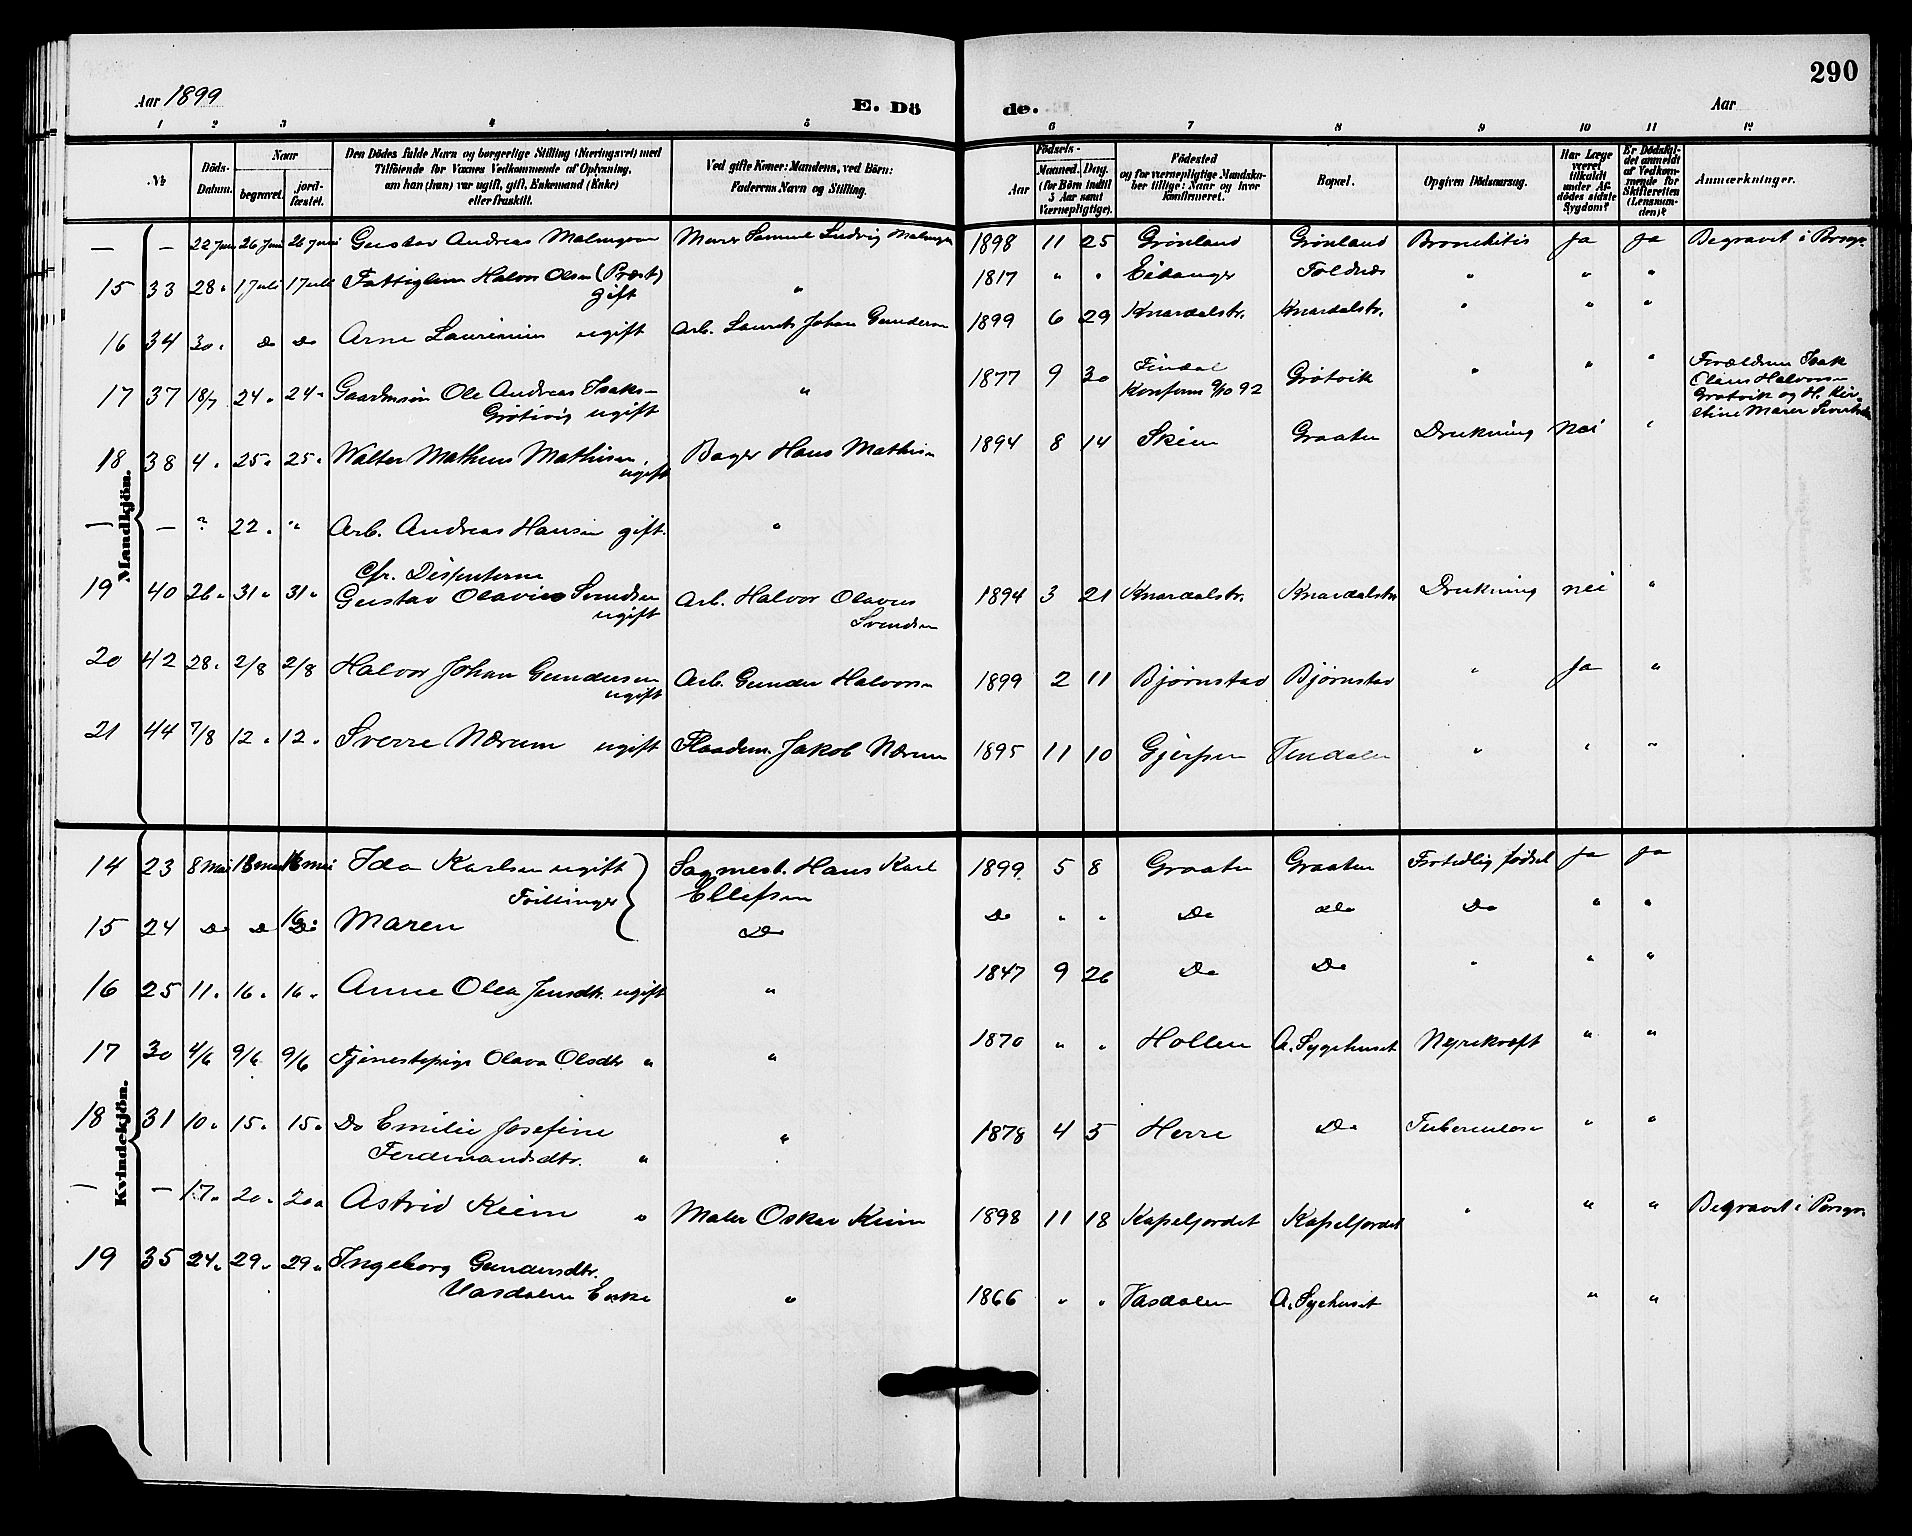 290
Aar 1899
E. Dö
de.
Aar
1 2 3 4 5 6 7 8 9 10 11 12
No
Döds-Datum.
Naar
begravet.
jordfæstet.
Den Dödes fulde Navn og borgerlige Stilling (Næringsvei) med
Tilföiende for Voxnes Vedkommende af Oplysning,
om han (hun) var ugift, gift, Enkemand (Enke)
eller fraskilt.
Ved gifte Koner: Mandens, ved Börn:
Faderens Navn og Stilling.
Födsels-
Aar
Maaned. Dag.
(for Börn indtil
5 Aar samt
Værnepligtige).
Födested
og for værnepligtige Mandskaber tillige: Naar og hvor
konfirmeret.
Bopæl.
Opgiven Dödsaarsag.
Har Læge været tilkaldt under Afdödes sidste Sygdom?
Er Dödsfaldet anmeldt af Vedkommende for Skifteretten (Lensmanden)?
Anmærkninger.
Mandkjön.
— — 22 Juni 26 Juni 26 Juni Gustav Andreas Malmgren Murer Samuel Ludvig Malmgren 1898 11 25 Grönland Grönland Bronchitis Ja Ja Begravet i Porsgr.
15 33 28 " 1 Juli 1 Juli Fattiglem Halvor Olsen (Præst) " 1817 " " Eidanger Toldnæs " " "
gift
16 34 30 " Do Do Arne Laurinius ugift Arb. Laurits Johan Gundersen 1899 6 29 Knardalstr. Knardalstr. " " "
17 37 18/7 24 " 24 " Gaardmsön Ole Andreas Isaks- " 1877 9 30 Findal Grötvik " " " Forældrene Isak
Grötvig ugift Konfirm 9/10 92 Claus Halvorsen
Grötvik og H. Kir-
stine Maren Sivertsdtr
18 38 4 " 25 " 25 " Walter Matheus Mathisen Bager Hans Mathisen 1894 8 14 Skien Graaten Drukning Nei "
ugift
— — " 22 " " Arb. Andreas Hansen gift. "
cfr. Dissenterne
19 40 26 " 31 " 31 " Gustav Olavius Svendsen Arb. Halvor Olavus 1894 3 21 Knardalstr. Knardalstr Drukning nei "
ugift Svendsen
20 42 28 " 2/8 2/8 Halvor Johan Gundersen Arb. Gunder Halvorsen 1899 2 11 Bjørnstad Bjørnstad " Ja "
ugift
21 44 7/8 12 " 12 " Sverre Nærum ugift Jakob Nærum 1895 11 10 Gjerpen " " "
Kvindekjön.
14 23 8 Mai 16 Mai Ida Karlsen ugift Sagmest. Hans Karl 1899 5 8 Graaten Graaten Fortidlig födsel Ja Ja
Tvillinger Ellefsen
15 24 Do Do 16 Do Maren Do Do " " Do do Do " "
16 25 11 " 16 " 16 " Anne Olea Jensdtr. ugift " 1847 9 26 Do Do " " "
17 30 4/6 9/6 9/6 Tjenestepige Olava Olsdtr " " 1870 " " Hollen A. Sygehuset Nyrekræft " "
18 31 10 " 15 " 15 " Do Emilie Josefine " 1878 4 5 Herre Do Tuberculose " "
Ferdinandsdtr. "
— — 17 " 20 " 20 " Astrid Keim " Maler Oskar Keim 1898 11 18 Kapelfjordet Kapelfjordet " " " Begravet i Porsgr.
19 35 24 " 29 " 29 " Ingeborg Gundersdtr.
Vasdalen Enke " 1866 " " Vasdalen A. Sygehuset " "